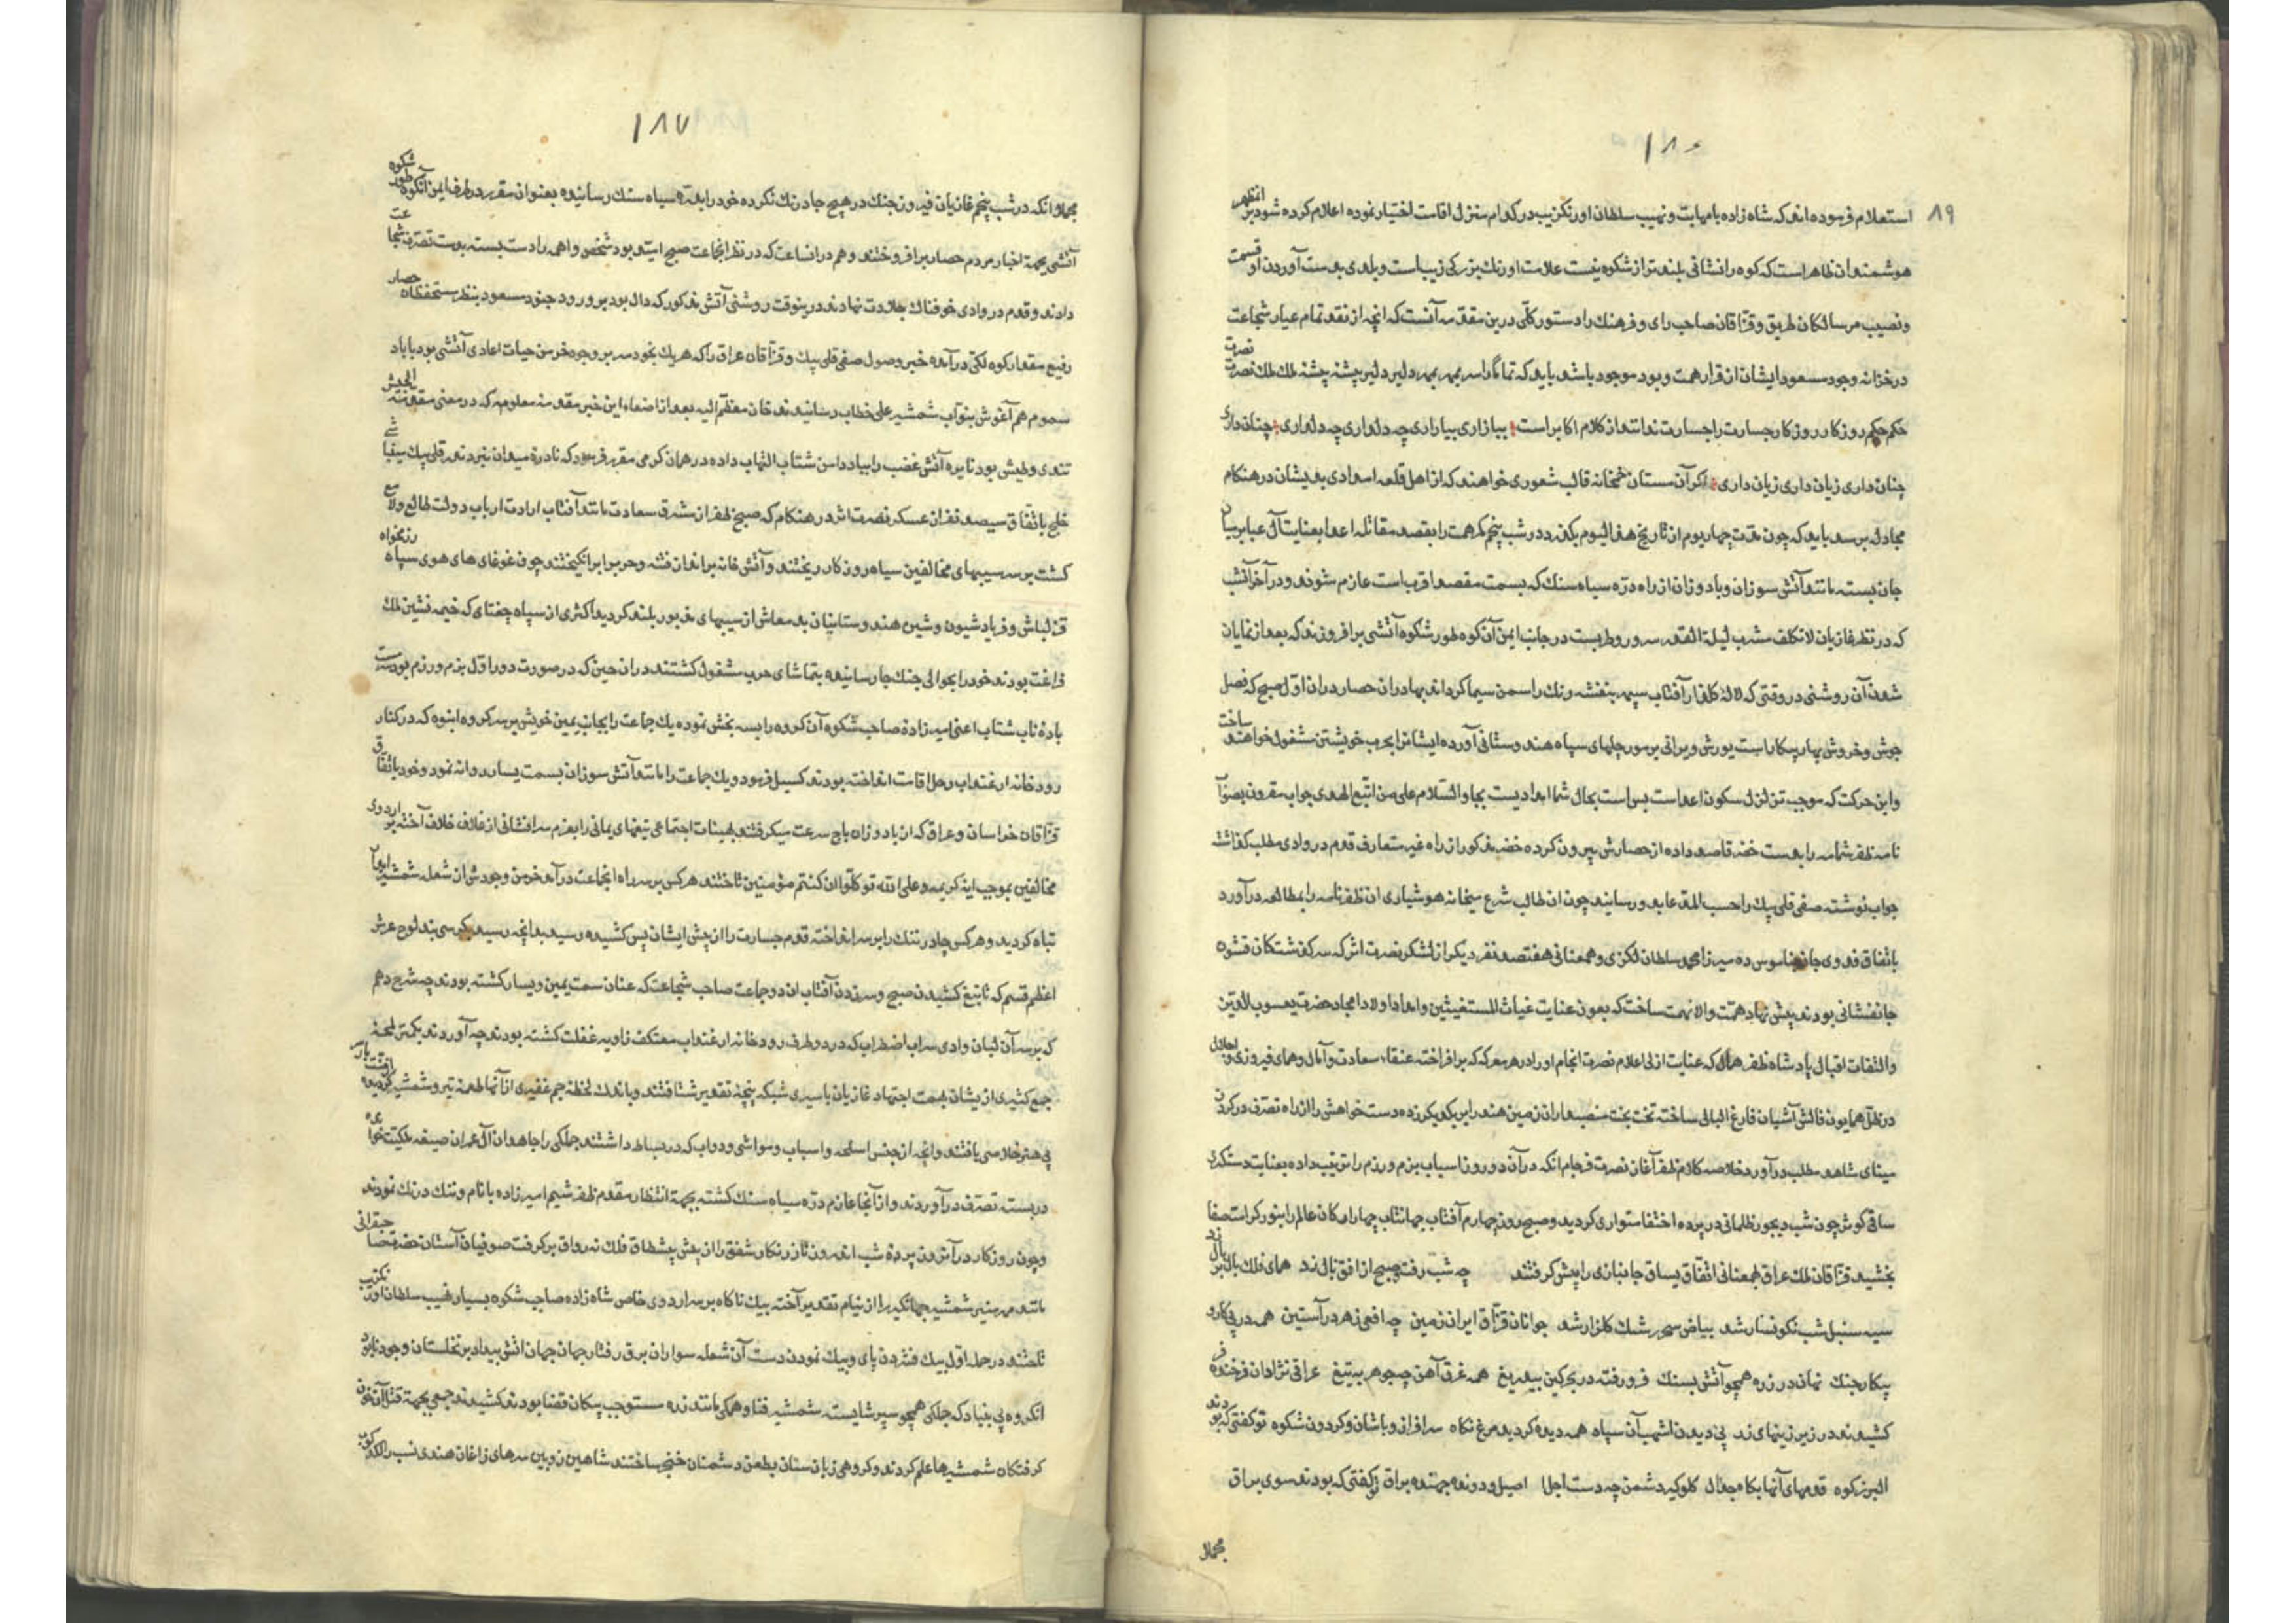 ۱۸۶
۸۹
استعلام فرموده اند که شاه زاده بامهابت و نهیب سلطان اورنکزیب در کدام منزل اقامت اختیار نموده اعلام کرده شود بر
هوشمندان ظاهر است که کوه را نشانی بلندتر از شکوه نیست علامت اورنك بزرکی زیباست و بلدی بدست آوردن او قسمت
ونصیب مر سالکان طریق و قزاقان صاحب رای و فرهنك را دستور کلّی درین مقدمه آنست که انچه از نقد تمام عیار شجاعت
در خزانه وجود مسعود ایشان از قرار همت و بود موجود باشد باید که تماما را سر بمهر دلیر دلیر چشته چشته ملك ملك نصرت
حکم حکم روز کار روز کار جسارت را جسارت از کلام اکابر است بیازاری بیازاری چه دلداری چه دلداری چنان داری
چنان داری زیان داری زیان داری اکر آن مستان خمخانه قالب شعوری خواهند که از اهل قلعه امدادی بدیشان در هنکام
مجادله برسد باید که چون مدت چهار یوم از تاریخ هذا الیوم بکذرد در شب پنجم کمر همت را بقصد مقاتله اعدا بعنایت آل عبا بر میان
جان بسته مانند آتش سوزان و باد وزان از راه درّه سیاه سنك که بسمت مقصد اقرب است عازم شوند و در آخر آنشب
که در نظر غازیان لاتکلف مشرب لیلة القدر سرور وطربست در جانب ایمن آن کوه طور شکوه آتشی برافروزند که بعد از نمایان
شدن آن روشنی در وقتی که لاله کلنار آفتاب سپهر بنفشه رنك را سمن سیما کرداند بهادران حصار در ان اوّل صبح که فصل
جوش و خروش بهار پیکار است یورش ویرانی بر مورچلهای سپاه هندوستانی آورده ایشانرا بحرب خویشتن مشغول خواهند ساخت
واین حرکت که موجب تزلزل سکون اعداست بس است بحال شما امدادیست بجا والسّلام علی من اتبع الهدی جواب مقرون بصواب
نامه ظفر شمامه را بدست خضر قاصد داده از حصارش بیرون کرده خضر مذکور از راه غیر متعارف قدم در وادی مطلب کذاشته
جواب نوشته صفی قلی بیك را حسب المدعا بدو رسانید چون ان طالب شرع میخانه هوشیاری ان ظفرنامه را بمطالعه درآورد
باتفاق فدوی جان ناموس ده میرزا محمد سلطان لکزی و همعنانی هفتصد نفر دیکر از لشکر نصرت اثر که سرکذشتکان قشوه
جانفشانی بودند پیش نهاد همّت والا نهمت ساخت که بعون عنایت غیاث المستغیثین وامداد اولاد امجاد حضرت یعسوب الدین
والتفات اقبال پادشاه ظفر همال که عنایت ازلی اعلام نصرت انجام او را در هر معرکه که برافراخته عنقاء سعادت و آمال و همای فیروزی و اجلال
در ظلّ همایون فالش آشیان فارغ البالی ساخته تخت بخت منصبداران زمین هند را بر یکدیکر زده دست خواهش را از راه تصرف در کردن
مینای شاهد مطلب درآورد خلاصه کلام ظفر آغاز نصرت فرجام انکه در آن دو روز اسباب بزم و رزم را ترتیب داده بعنایت دستکیری
ساقی کوثر چون شب دیجور ظلمانی در پرده اختفا متواری کردید و صبح روز چهارم آفتاب جهانتاب چهار ارکان عالم را بنور کرامت صفا
بخشید قزاقان ملك عراق همعنانی اتفاق یساق جانبازی را پیش کرفتند چه شب رفت و صبح از افق بال زد همای فلك بال بر بال زد
سیه سنبل شب نکونسار شد بیاض سحر رشك کلزار شد جوانان قزّاق ایران زمین چه افعی زهر در آستین همه در پی کار و
پیکار جنك نهان در زره همچو آتش بسنك فرو رفته در بحر کین بیدریغ همه غرق آهن چو جوهر بتیغ عراقی نژادان فرخنده فر
کشیدند در زیر زینهای زر پی دیدن اشهب آن سپاه همه دیده کردید مرغ نکاه سرافراز و باشان و کردون شکوه تو کفتی که بودند
البرز کوه قدمهای آنها بکاه جدال کلوکیر دشمن چه دست اجل اصیل و دونده جهنده براق تو کفتی که بودند سوی براق
مجملا
۱۸۷
مجملا انکه در شب پنجم غازیان فیروز جنك در هیچ جا درنك نکرده خود را بدرّه سیاه سنك رسانیده بعنوان مقرر در طرف ایمن آنکوه طور شکوه
آتشی بجهة اخبار مردم حصار برافروختند و هم در انساعت که در نظر انجماعت صبح امید بود شخص واهمه را دست بسته بدست تصرف شجاعت
دادند و قدم در وادی خوفناك جلادت نهادند درینوقت روشنی آتش مذکور که دال بود بر ورود جنود مسعود بنظر مستحفظان حصار
رفیع مقدار کوه لکی درآمده خبر وصول صفی قلی بیك و قزاقان عراق را که هریك بخودسر بر وجود خرمن حیات اعادی آتشی بود با باد
سموم هم آغوش بنوّاب شمشیر علی خطاب رسانیدند خان معظّم الیه بعد از اصغاء این خبر مقدمه معلومه که در معنی مقدمة الجیش
تندی و طیش بود نایره آتش غضب را بباد دامن شتاب التهاب داده در همان کرمی مقرر فرمود که نادره میدان نبرد ندر قلی بیك مینباشی
خلج باتّفاق سیصد نفر از عسکر نصرت اثر در هنکام که صبح ظفر از مشرق سعادت مانند آفتاب ارادت ارباب دولت طالع ولامع
کشت بر سر سیبهای مخالفین سیاه روزکار ریختند و آتش خانه برانداز فتنه و حرب را برانکیختند چون غوغای های هوی سپاه رزمخواه
قزلباش و فریاد شیون و شین هندوستانیان بد معاش از سیبهای مذبور بلند کردید اکثری از سپاه چغتای که خیمه نشین ملك
فراغت بودند خود را بحوالی جنك جا رسانیده بتماشای حرب مشغول کشتند در ان حین که در صورت دور اوّل بزم و رزم بود سرمست
باده ناب شتاب اعنی امیرزاده صاحب شکوه آن کروه را بسه بخش نموده یك جماعت را بجانب یمین خویش بر سر کروه انبوه که در کنار
رودخانه ارغنداب رحل اقامت انداخته بودند کسیل فرمود و یك جماعت را مانند آتش سوزان بسمت یسار روانه نمود و خود باتفاق
قزّاقان خراسان و عراق که از باد وزان باج سرعت میکرفتند بهیئات اجتماعی تیغهای یمانی را بعزم سرافشانی از غلاف خلاف آخته بر اردوی
مخالفین بموجب ایه کریمه وعلی الله توکلوا ان کنتم مؤمنین تاختند هرکس بر سر راه انجماعت درآمد خرمن وجودش از شعله شمشیر ایشان
تباه کردید و هرکس چادر ننك را بر سر انداخته قدم جسارت را از پیش ایشان پس کشیده رسید بدانچه رسید کرسی بند لوح عرش
اعظم قسم که تا تیغ کشیدن صبح و سر زدن آفتاب ان دو جماعت صاحب شجاعت که عنان سمت یمین و یسار کشته بودند چه شرح دهم
که بر سر آن لبان وادی سراب اضطراب که در دو طرف رودخانه ارغنداب معتکف زاویه غفلت کشته بودند چه آوردند بکمتر لمحه
جمع کثیری از یشان بهمت اجتهاد غازیان باسیری شبکه پنجه تقدیر شتافتند و باندك لحظه جم غفیری از آنها طعمه تیر و شمشیر کردیده
بی هنر خلاصی یافتند وانچه از جنس اسلحه و اسباب و مواشی و دواب که در بساط داشتند جملکی را مجاهدان آل عمران صیغه ملکیت خوانده
در بسته تصرف درآوردند و از آنجا عازم درّه سیاه سنك کشته بجهة انتظار مقدم ظفر شیم امیرزاده بانام و ننك درنك نمودند
و چون روزکار در آندرون پرده شب اندرون تار زرنکار شفق را از پیش پیشطاق فلك نه رواق برکرفت صوفیان آستان حضرت صاحبقرانی
مانند مهر منیر شمشیر جهانکیر را از نیام تقدیر آخته بیك ناکاه بر سر اردوی خاص شاه زاده صاحب شکوه بسیار نهیب سلطان اورنکزیب
تاختند در حمله اوّل بیك فشردن پای و بیك نمودن دست آن شعله سواران برق رفتار جهان جهان آتش بیداد بر نخلستان وجود نابود
انکروه بی بنیاد که جملکی همچو سپر شایسته شمشیر فنا و همکی مانند زره مستوجب پیکان قضا بودند کشیدند جمعی بجهة قتال آن خون
کرفتکان شمشیرها علم کردند و کروهی زبان سنان بطعن دشمنان خنجر ساختند شاهین زوبین سرهای زاغان هندی نسب را لکدکوب